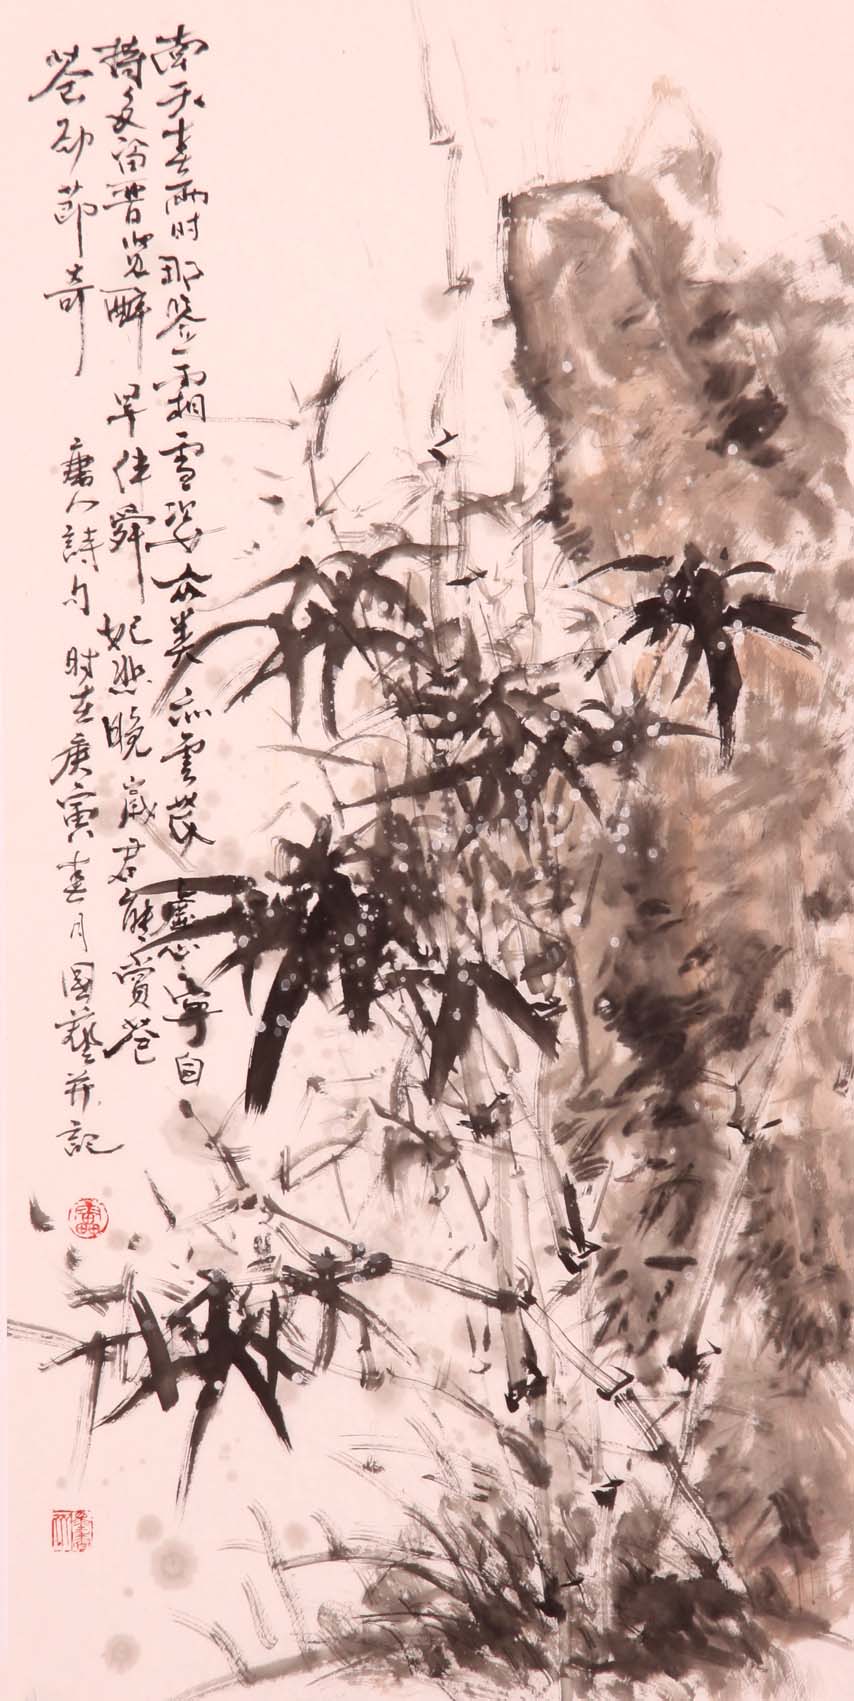 南天春雨时那鉴霜雪姿众类亦雲茂虚心寧自
持多留晋贤醉早伴舜妃悲晚歲君能賞苍
苍劲節奇
唐人詩句时在庚寅春月國藝并記